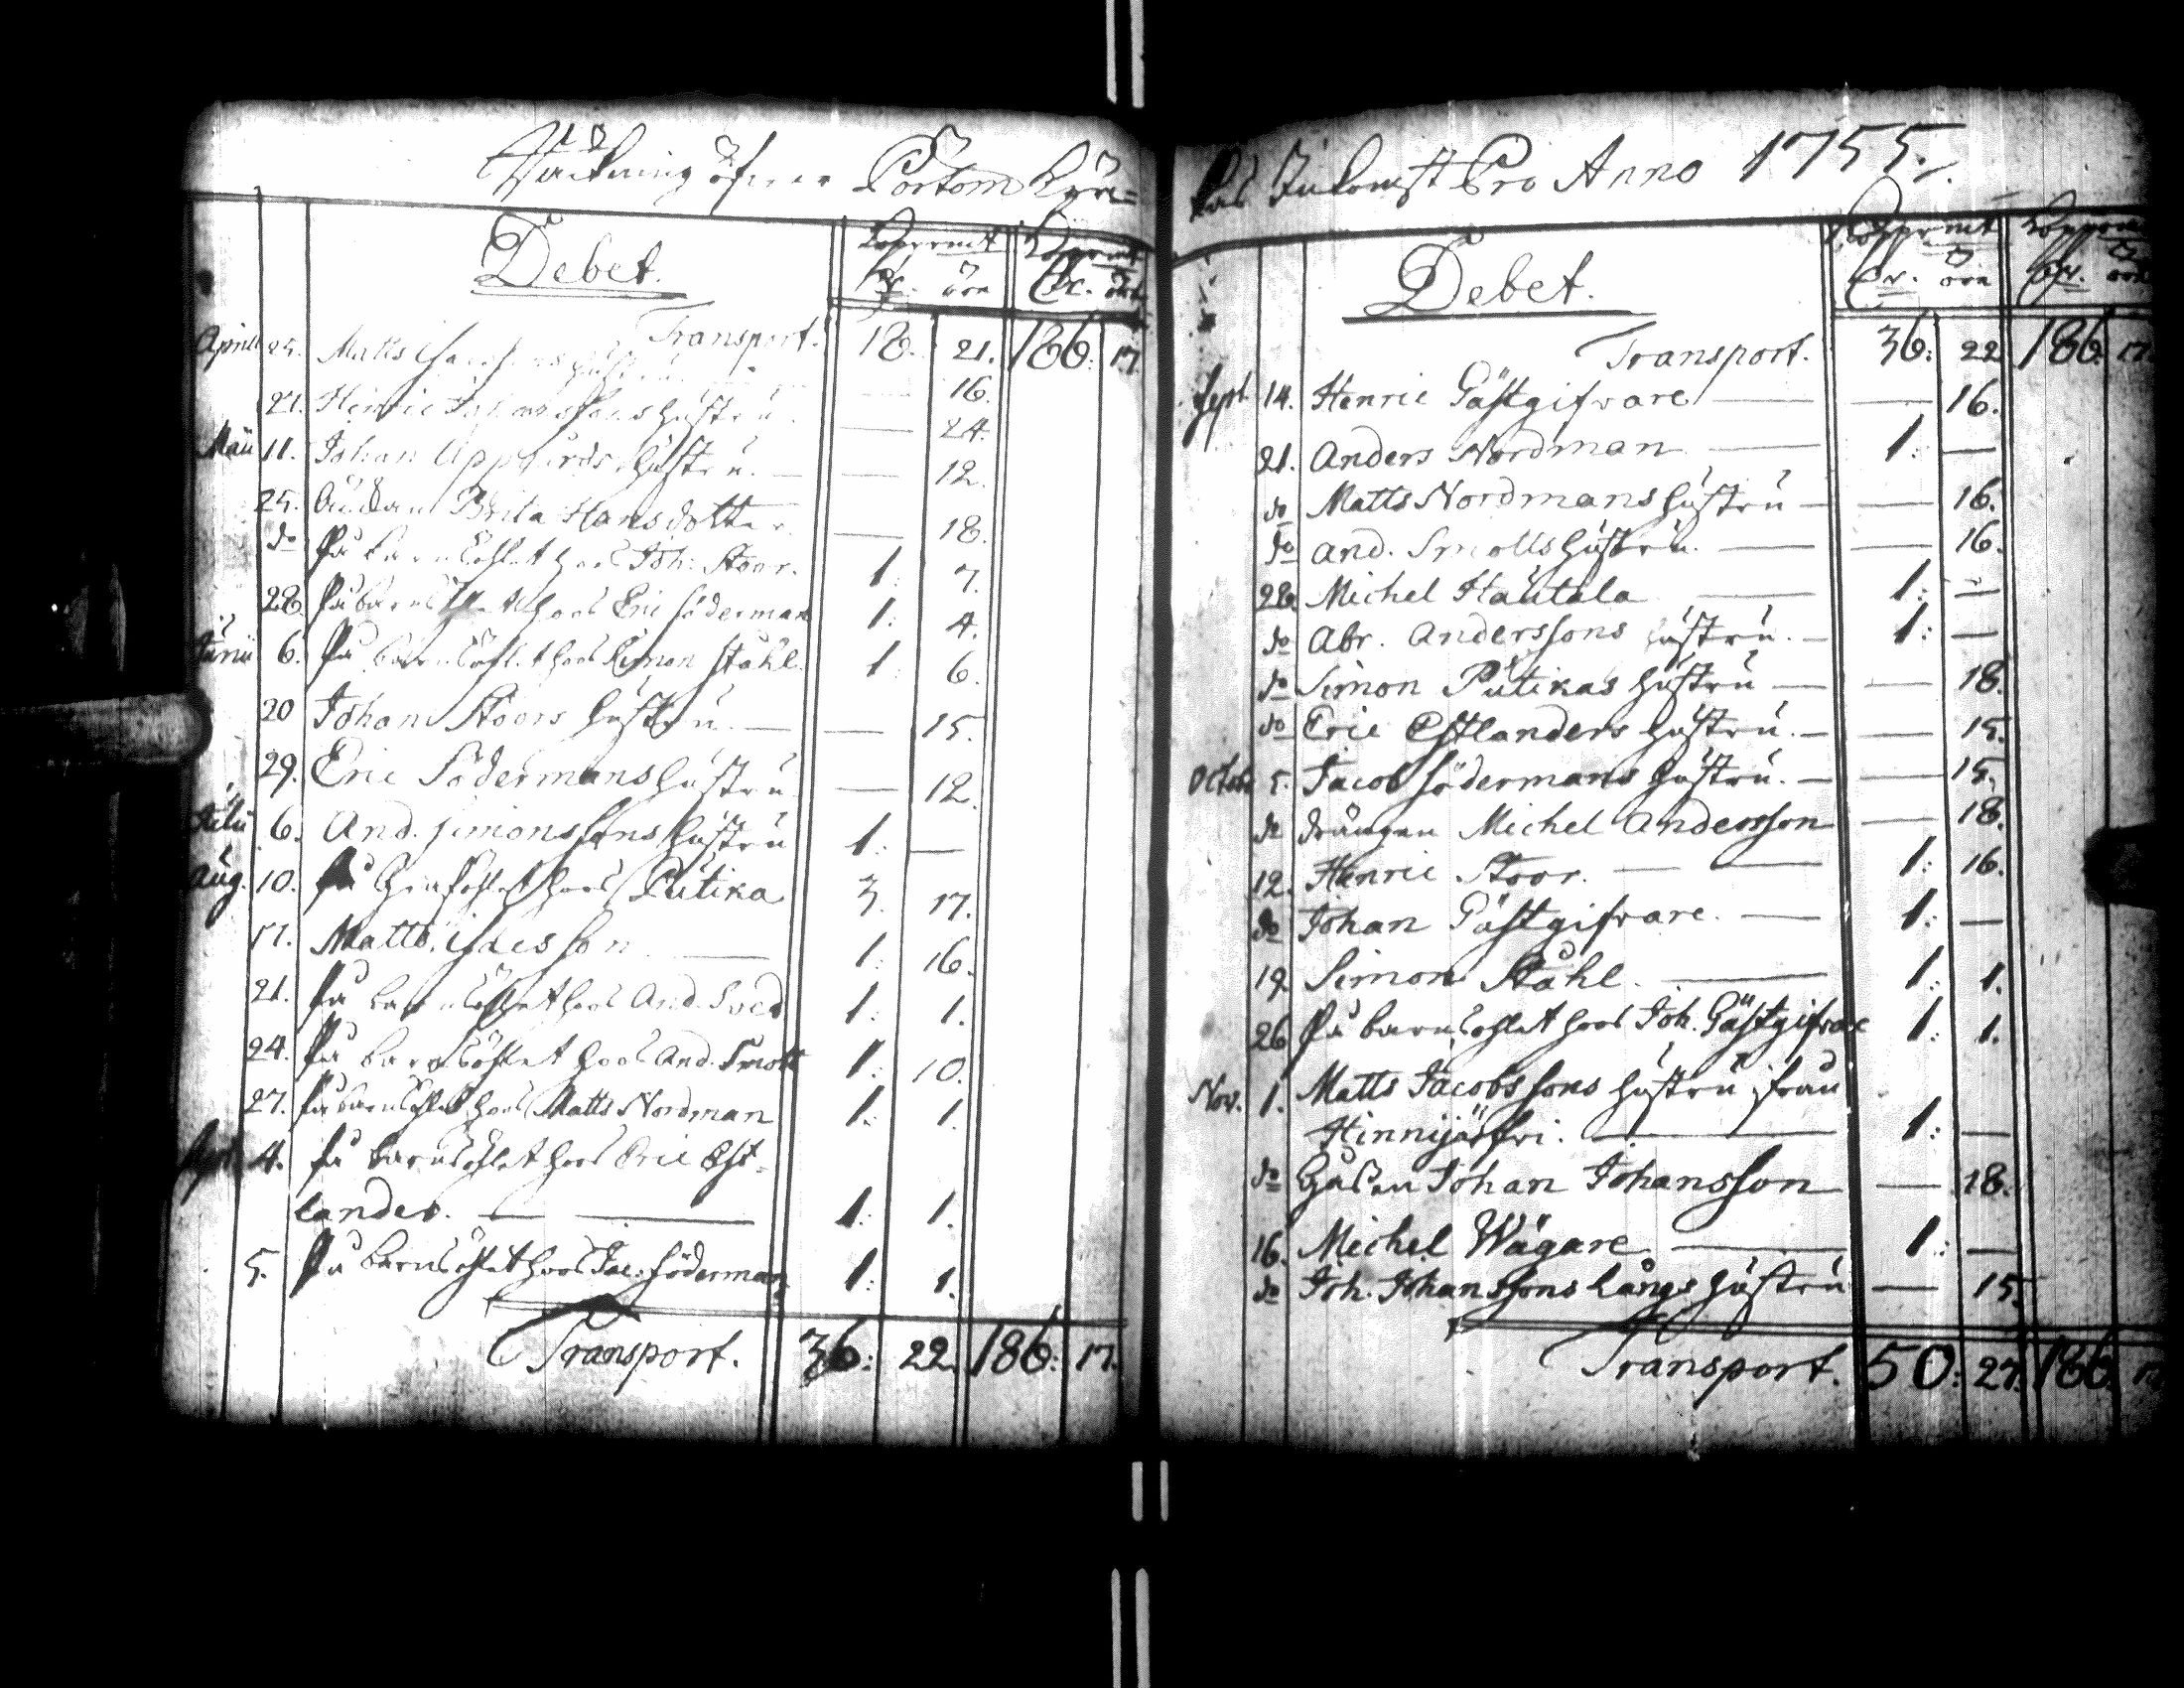 Räkning öfwer Pörtom Kyrc=
Debet.
Koppermt Koppermt
Dr. öre Dr. öre
Transport. 18. 21. 186. 17.
Aprill 25. Matts hustru — 16.
27. Henric Johanssons hustru — 24.
Maii 11. Johan Uppgårds hustru. — 12.
25. Änckan Brita Hansdotter. — 18.
do På barnsöhlet hoos Joh: Stoor. 1: 7.
28. På barnsöhlet hoos Eric Söderman 1: 4.
Junii 6. På barnsöhlet hoos Simon Ståhl. 1: 6.
20 Johan Stoors hustru — 15.
29. Eric Södermans hustru — 12.
Julii 6. And. Simonssons hustru 1: —
Aug. 10. På hoos Putika 3. 17.
17. Matts 1: 16.
21. På barnsöhlet hoos And. Sved 1: 1.
24. På barnsöhlet hoos And. Smolt 1: 10.
27. På barnsöhlet hoos Matts Nordman 1: 1.
Sept. 4. På barnsöhlet hoos Eric Est-
lander. — 1: 1.
5. På barnsöhlet hoos Jac: Söderman 1: 1.
Transport. 36: 22. 186: 17.
kas Inkomst Pro Anno 1755.
Debet.
Koppermt Koppermt
Dr. öre Dr. öre
Transport. 36: 22 186. 17.
Sept. 14. Henric Gästgifware — 16.
21. Anders Nordman — 1: —
do Matts Nordmans hustru — 16.
do And. Smolts hustru. — 16.
28. Michel Hautala — 1: —
do Abr. Anderssons hustru. — 1: —
do Simon Putikas hustru — 18.
do Eric Estlanders hustru. — 15.
Octob. 5. Jacob Södermans hustru. — 15.
do drängen Michel Andersson — 18.
12. Henric Stoor. — 1: 16.
do Johan Gästgifware. — 1: —
19. Simon Ståhl. — 1: 1.
26 På barnsöhlet hoos Joh. Gästgifvare 1: 1.
Nov. 1. Matts Jacobssons hustru ifrån
Hinnijärfvi. — 1: —
do Gossen Johan Johansson — 18.
16. Michel Wägare — 1: —
do Joh. Johanssons Långs hustru — 15.
Transport. 50: 27. 186. 17.